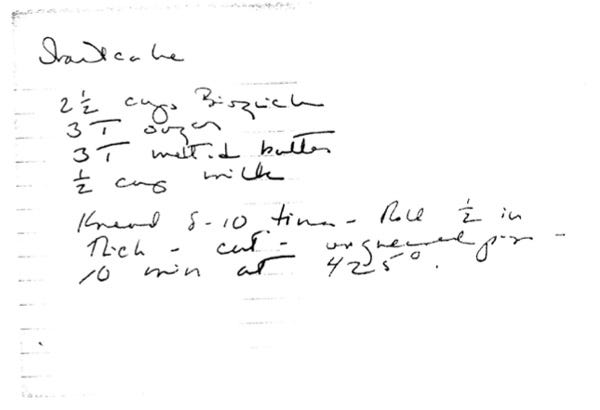 Shortcake
2 1/2 cups Bisquick
3 T sugar
3 T melted butter
1/2 cup milk
Knead 8-10 times - Roll 1/2 in
thick - cut - ungreased pan -
10 min at 425°.